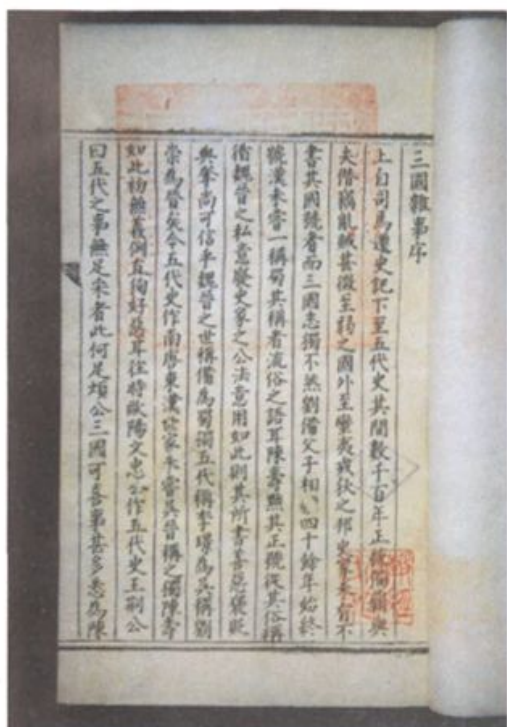 三國雜事序
上自司馬遷史記下至五代史其間數千百年正統偏霸與
夫僭竊亂賊甚微至弱之國外至蠻夷戎狄之邦史家未嘗不
書其國號者而三國志獨不然劉備父子相四十餘年始終
號漢未嘗一稱蜀其稱者流俗之語耳陳壽黜其正號從其俗稱
循魏晉之私意廢史家之公法意用如此則其所書善惡褒貶
與奪尚可信乎魏晉之世稱備為蜀猶五代稱李璟為吳稱劉
崇為晉矣今五代史作南唐東漢世家未嘗吳晉稱之獨陳壽
如此初無義例直徇好惡耳往時歐陽文忠公作五代史王荊公
曰五代之事無足采者此何足煩公三國可喜事甚多悉為陳